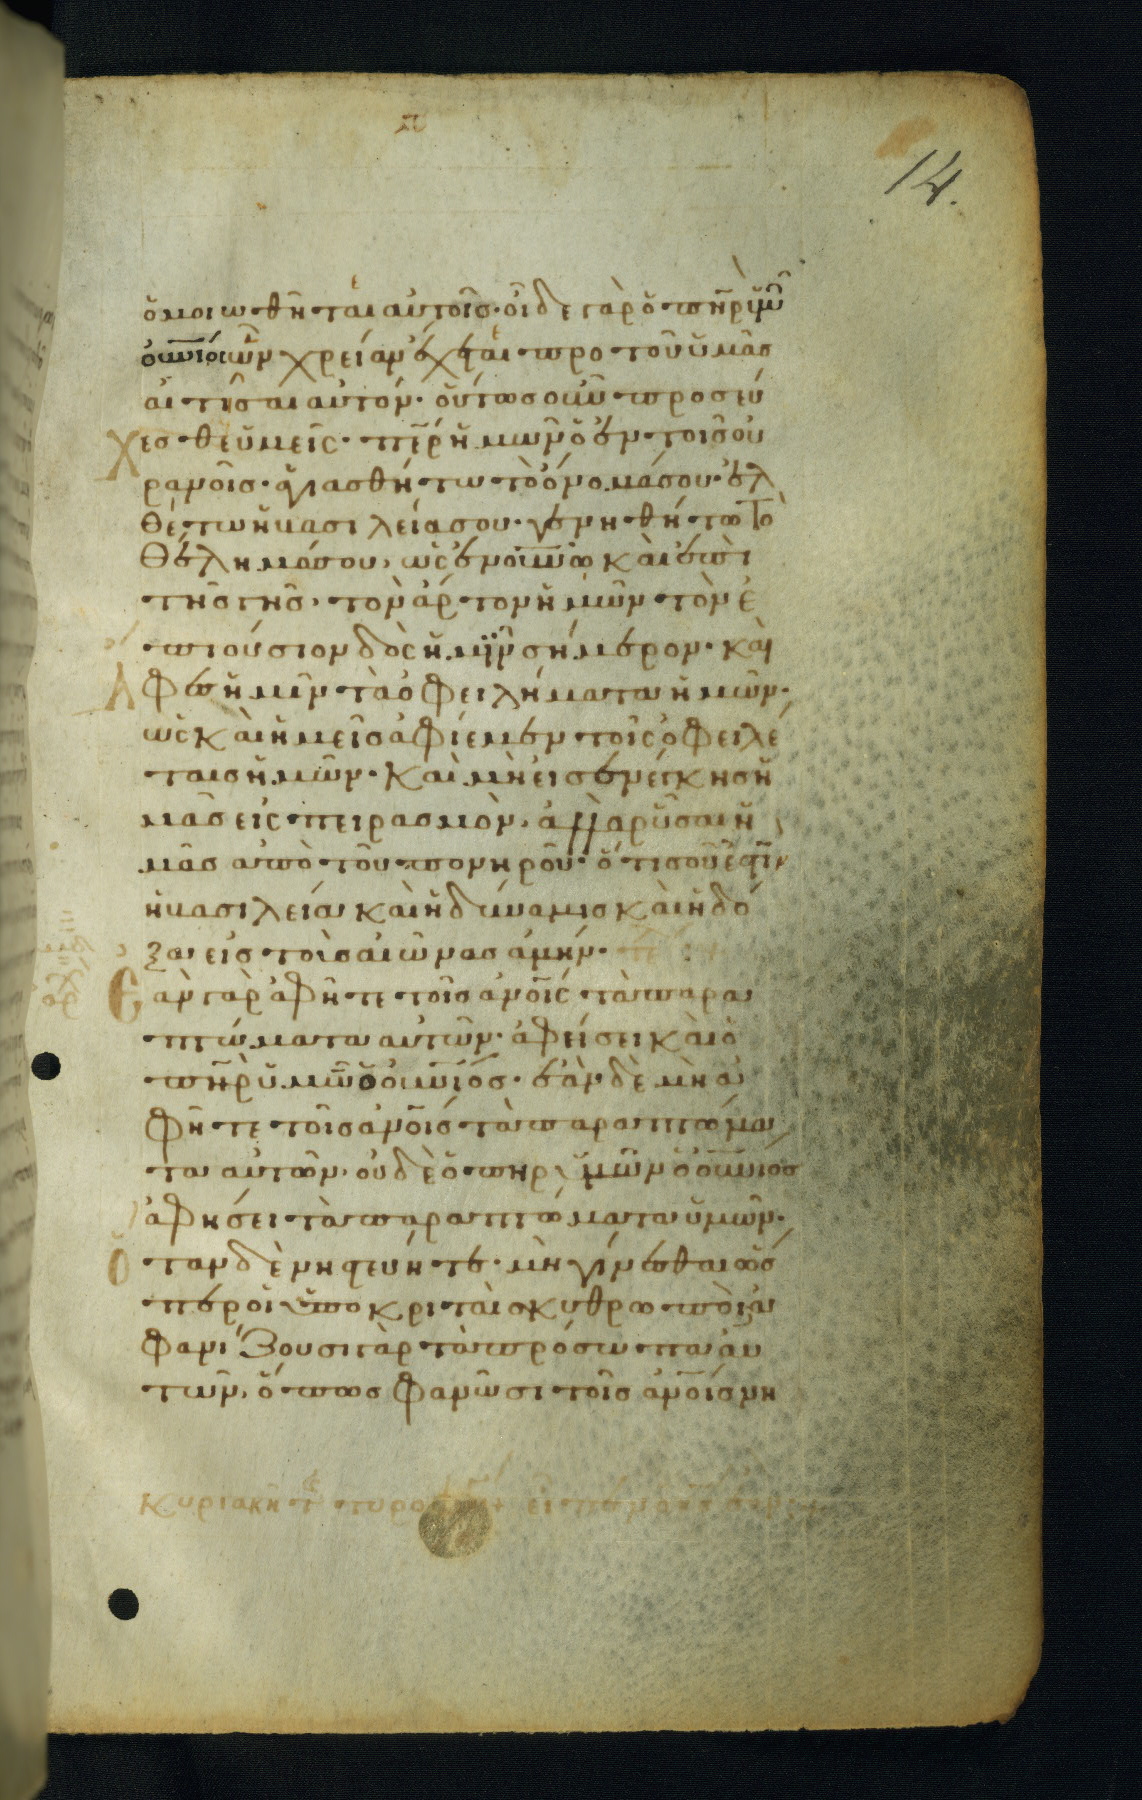 14.
ὁμοιωθῆται αὐτοῖς· οἶδε γὰρ ὁ πηρ ὑμῶ
ὁ οὐνιος ὧν χρείαν ἔχεται προ τοῦ ὑμᾶς
αἰτῆσαι αὐτόν· οὕτως οὖν προσεύ
χεσθε ὑμεῖς· περ ἡμῶν ὁ ἐν τοῖς οὐ
ρανοῖς· ἁγιασθήτω τὸ ὄνομά σου· ἐλ
θέτω ἡ βασιλεία σου· γενηθήτω τὸ
θέλημά σου, ὡς ἐν οὐνω καὶ ἐπὶ
τῆς γῆς, τὸν ἄρτον ἡμῶν τὸν ἐ
πιούσιον δὸς ἡμῖν σήμερον· καὶ
ἄφες ἡμῖν τὰ ὀφειλήματα ἡμῶν·
ὡς καὶ ἡμεῖς ἀφίεμεν τοῖς ὀφειλέ
ταις ἡμῶν· καὶ μὴ εἰσενείκης ἡ
μᾶς εἰς πειρασμὸν, ἀλλὰ ρῦσαι ἡ
μᾶς ἀπὸ τοῦ πονηροῦ· ὅτι σοῦ ἐστὶν
ἡ βασιλεία καὶ ἡ δύναμις καὶ ἡ δό
ξα εἰς τοὺς αἰῶνας ἀμήν·
Ἐὰν γὰρ ἀφῆτε τοῖς ἀνοις τὰ παρα
πτώματα αὐτῶν· ἀφείσει καὶ ὁ
πηρ ὑμῶν ὁ οὐνιος· ἐὰν δὲ μὴ ἀ
φῆτε τοῖς ἀνοις τὰ παραπτώμα
τα αὐτῶν, οὐδὲ ὁ πηρ ὑμῶν ὁ οὐνιος
ἀφήσει τὰ παραπτώματα ὑμῶν·
Ὅταν δὲ νηστευήτε· μὴ γίνεσθαι ὥσ
περ οἱ ὑποκριταὶ σκυθρωποὶ ἀ
φανίζουσι γὰρ τὰ πρόσωπα αὐ
τῶν, ὅπως φανῶσι τοῖς ἀνοις νη
Κυριακῆ τῆς τυροφ